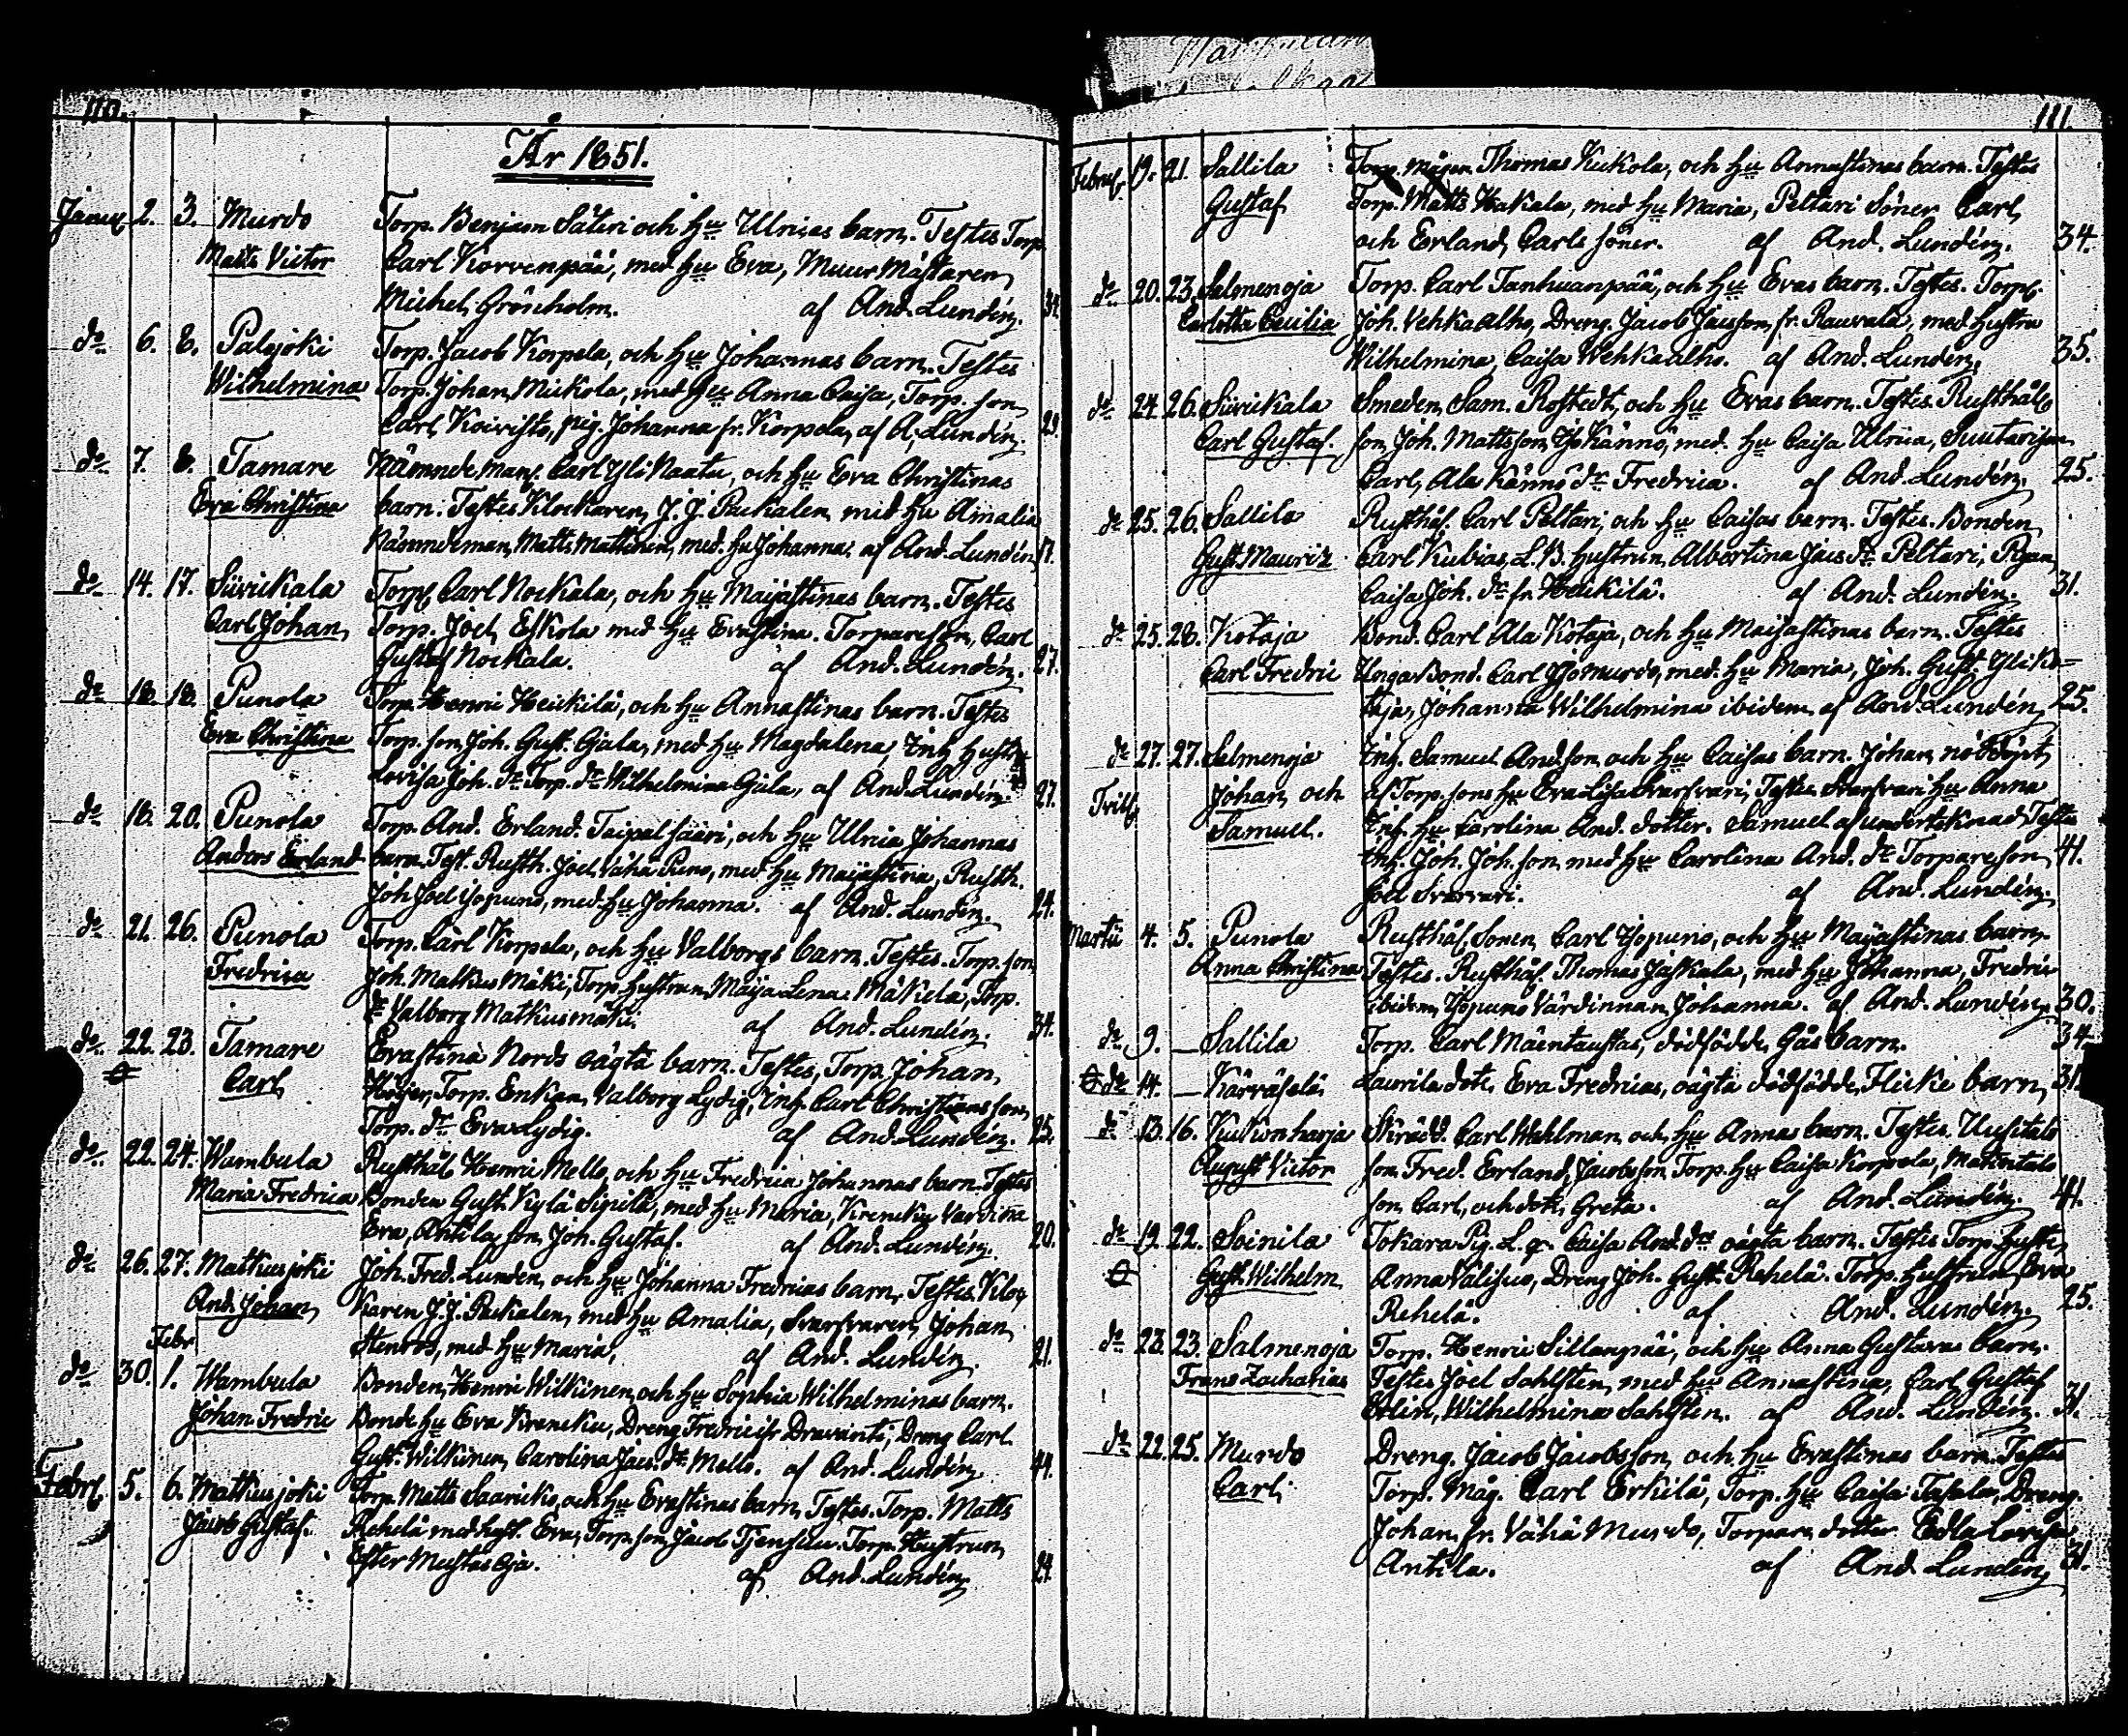 110.
År 1851.
Januar 2. 3. Murdo Torp. Benjam Säteri och Hu Ulricas barn. Testes Torp.
Matts Victor Carl Korvenpää, med Hu Eva, Muur Mästaren
Michel Grönholm. af And. Lundén. 34.
do 6. 8. Palojoki Torp. Jacob Korpela, och Hu Johannas barn. Testes
Wilhelmina Torp. Johan Mickola, med Hu Anna Caisa, Torp. son
Carl Koivisto, pig. Johanna fr. Korpela, af A. Lundén. 29.
do 7. 8. Tamare Nämndeman Carl Yli Naatu, och Hu Eva Christinas
Eva Christina barn. Testes Klockaren J. J. Packalen med Hu Amalia
Nämndeman Matts Mattinen, med Hu Johanna, af And. Lundén 17.
do 14. 17. Siivickala Torp. Carl Nockala, och Hu Maijastinas barn. Testes
Carl Johan Torp. Joel Eskola med Hu Evastina. Torpareson Carl
Gustaf Nockala. af And. Lundén. 27.
do 18. 18. Punola Torp. Henric Heickilä, och Hu Annastinas barn. Testes
Eva Christina Torp. son Joh. Gust. Gjala, med Hu Magdalena, Inh. Hustr
Lovisa Joh. dr Torp. dr Wilhelmina Gjala, af And. Lundén. 27.
do 18. 20. Punola Torp. And. Erland Taipalsaari, och Hu Ulrica Johannas
Anders Erland barn. Test. Rusth. Joel Vähä Puno, med Hu Maijastina, Rusth.
Joh. Joel Isopuno, med Hu Johanna. af And. Lundén. 24.
do 21. 26. Punola Torp. Carl Korpela, och Hu Valborgs barn. Testes. Torp. son
Fredrica Joh. Matkus Mäki, Torp. hustrun Maija Lena Mäkelä, Torp.
dr Valborg Matkusmäki. af And. Lundén. 34.
do 22. 23. Tamare Evastina Nords oägta barn. Testes, Torp. Johan
Carl Höijer, Torp. Enkan Valborg Lydig, Inh. Carl Christiansson
Torp. dr Eva Lydig. af And. Lundén. 25.
do 22. 24. Wambula Rusthål. Henric Mello, och Hu Fredrica Johannas barn. Testes
Maria Fredrica Bonden Gust. Kylä Sipilä, med Hu Maria, Krencku Värdinna
Eva, Antila son Joh. Gustaf. af And. Lundén. 20.
do 26. 27. Matkusjoki Joh. Fred. Lunden, och Hu Johanna Fredricas barn, Testes Kloc
And. Johan karen J. J. Packalen, med Hu Amalia, Svarfvaren Johan
Stenroos, med Hu Maria, af And. Lundén. 21.
Febr
do 30. 1. Wambula Bonden Henric Wilkinen, och Hu Sophia Wilhelminas barn.
Johan Fredric Bonde Hu Eva Krencku, Dreng Fredric fr Dravanti, Dreng Carl
Gust. Wilkinen, Carolina Jacs. dr Mello. af And. Lundén. 44.
Febr. 5. 6. Matkusjoki Torp. Matts Saaricko, och Hu Evastinas barn, Testes. Torp. Matts
Jacob Gustaf. Rehelä med hust. Eva, Torp. son Jacob Tjensuu. Torp. Hustrun
Ester Mustasoja. af And. Lundén. 24.
111.
Februar 19. 21. Sallila Torp. mågen Thomas Kuckola, och Hu Annastinas barn. Testes
Gustaf Torp. Matts Hakala, med Hu Maria, Peltari Söner Carl
och Erland Carls söner. af And. Lundén. 34.
do 20. 23. Salmenoja Torp. Carl Tanhuanpää, och Hu Evas barn. Testes. Torp.
Carlotta Cecilia Joh. Vehkaalho, Dreng. Jacob Jacsson fr. Rauvala, med hustru
Wilhelmina, Caisa Wehkaalho. af And. Lundén. 35.
do 24. 26. Siivickala Smeden Sam. Rostedt, och Hu Evas barn. Testes. Rusthåls
Carl Gustaf. son Joh. Mattsson Iso Kännö, med Hu Caisa Ulrica, Suutarison
Carl, Ala Kännö dr Fredrica. af And. Lundén. 25.
do 25. 26. Sallila Rusthåf. Carl Peltari, och Hu Caisas barn. Testes. Bonden
Gust. Mauritz Carl Kubias, L. B. Hustrun Albertina Jacs dr Peltari, Pigan
Caisa Joh. dr fr. Heickilä. af And. Lundén. 31.
do 25. 28. Kotaja Bond. Carl Ala Kotaja, och Hu Maijastinas barn. Testes
Carl Fredric Unga Bond. Carl Isomurdo, med Hu Maria, Joh. Gust. Yli Ko=
taja, Johanna Wilhelmina ibidem af And. Lundén. 25.
do 27. 27. Salmenoja Inh. Samuel Andsson och Hu Caisas barn. Johan nöddöpt
Tvill. Johan och af Torp. sons Hu Eva Lisa Svarfvari, Testes Svarfvari Hu Anna
Samuel. Inh. Hu Carolina And. dotter. Samuel af undertecknad Testes
Inh. Joh. Joh. son med Hu Carolina And. dr Torpareson 41.
Joel Svarvari. af And. Lundén.
Martii 4. 5. Punola Rusthåf. Sonen Carl Isopuno, och Hu Maijastinas barn.
Anna Christina Testes. Rusthåf. Thomas Jaskala, med Hu Johanna, Fredric
ibidem, Isopuno Värdinnan Johanna. af And. Lundén. 30.
do 9. — Sallila Torp. Carl Mäentaustas, dödfödde Gåsbarn. 34.
do 14. — Kärväselä Laurila dott. Eva Fredricas, oägta dödfödde Flicke barn 31.
do 13. 16. Kutunharja Skrädd. Carl Wahlman och Hu Annas barn. Testes. Uusitalo
August Victor son Fred. Erland Jacobsson Torp. Hu Caisa Korpela, Matintalo
son Carl, och dott. Greta. af And. Lundén. 41.
do 19. 22. Soinila Tokara Pig. L. q. Caisa And. drs oägta barn. Testes Torp. hustr.
Gust. Wilhelm Anna Välisuo, Dreng Joh. Gust. Rehelä. Torp. Hustrun Eva
Rehelä. af And. Lundén. 25.
do 23. 23. Salmenoja Torp. Henric Sillanpää, och Hu Anna Gustavas barn.
Frans Zacharias Testes Joel Sahlsten, med Hu Annastina, Carl Gustaf
Ohlin, Wilhelmina Sahlsten. af And. Lundén. 31.
do 22. 25. Murdo Dreng. Jacob Jacobsson, och Hu Evastinas barn. Testes
Carl Torp. Måg. Carl Erkilä, Torp. Hu Caisa Tasala, Dreng.
Johan fr. Vähä Murdo, Torpare dotter Edla Lovisa
Antila. af And. Lundén 31.